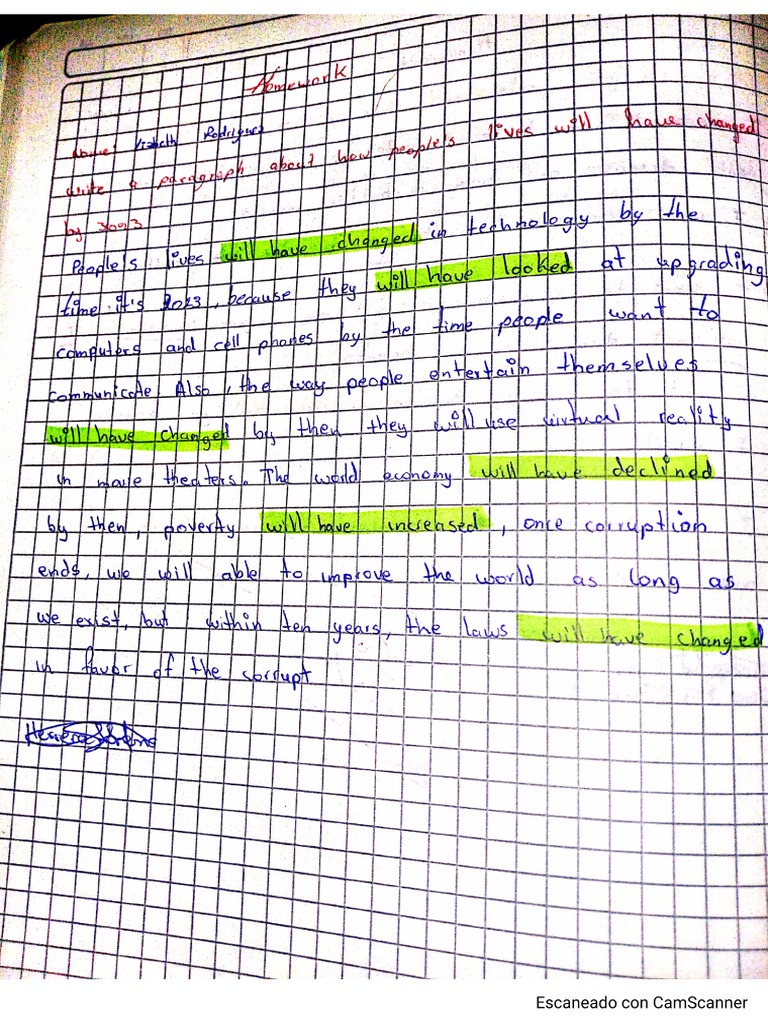 Homework
Name: Lizbeth Rodriguez
write a paragraph about how people's lives will have changed
by 3023
People's lives will have changed in technology by the
time it's 2023, because they will have looked at upgrading
computers and cell phones by the time people want to
communicate. Also, the way people entertain themselves
will have changed by then they will use virtual reality
in movie theaters. The world economy will have declined
by then, poverty will have increased, once corruption
ends, we will able to improve the world as long as
we exist, but within ten years, the laws will have changed
in favor of the corrupt
Escaneado con CamScanner